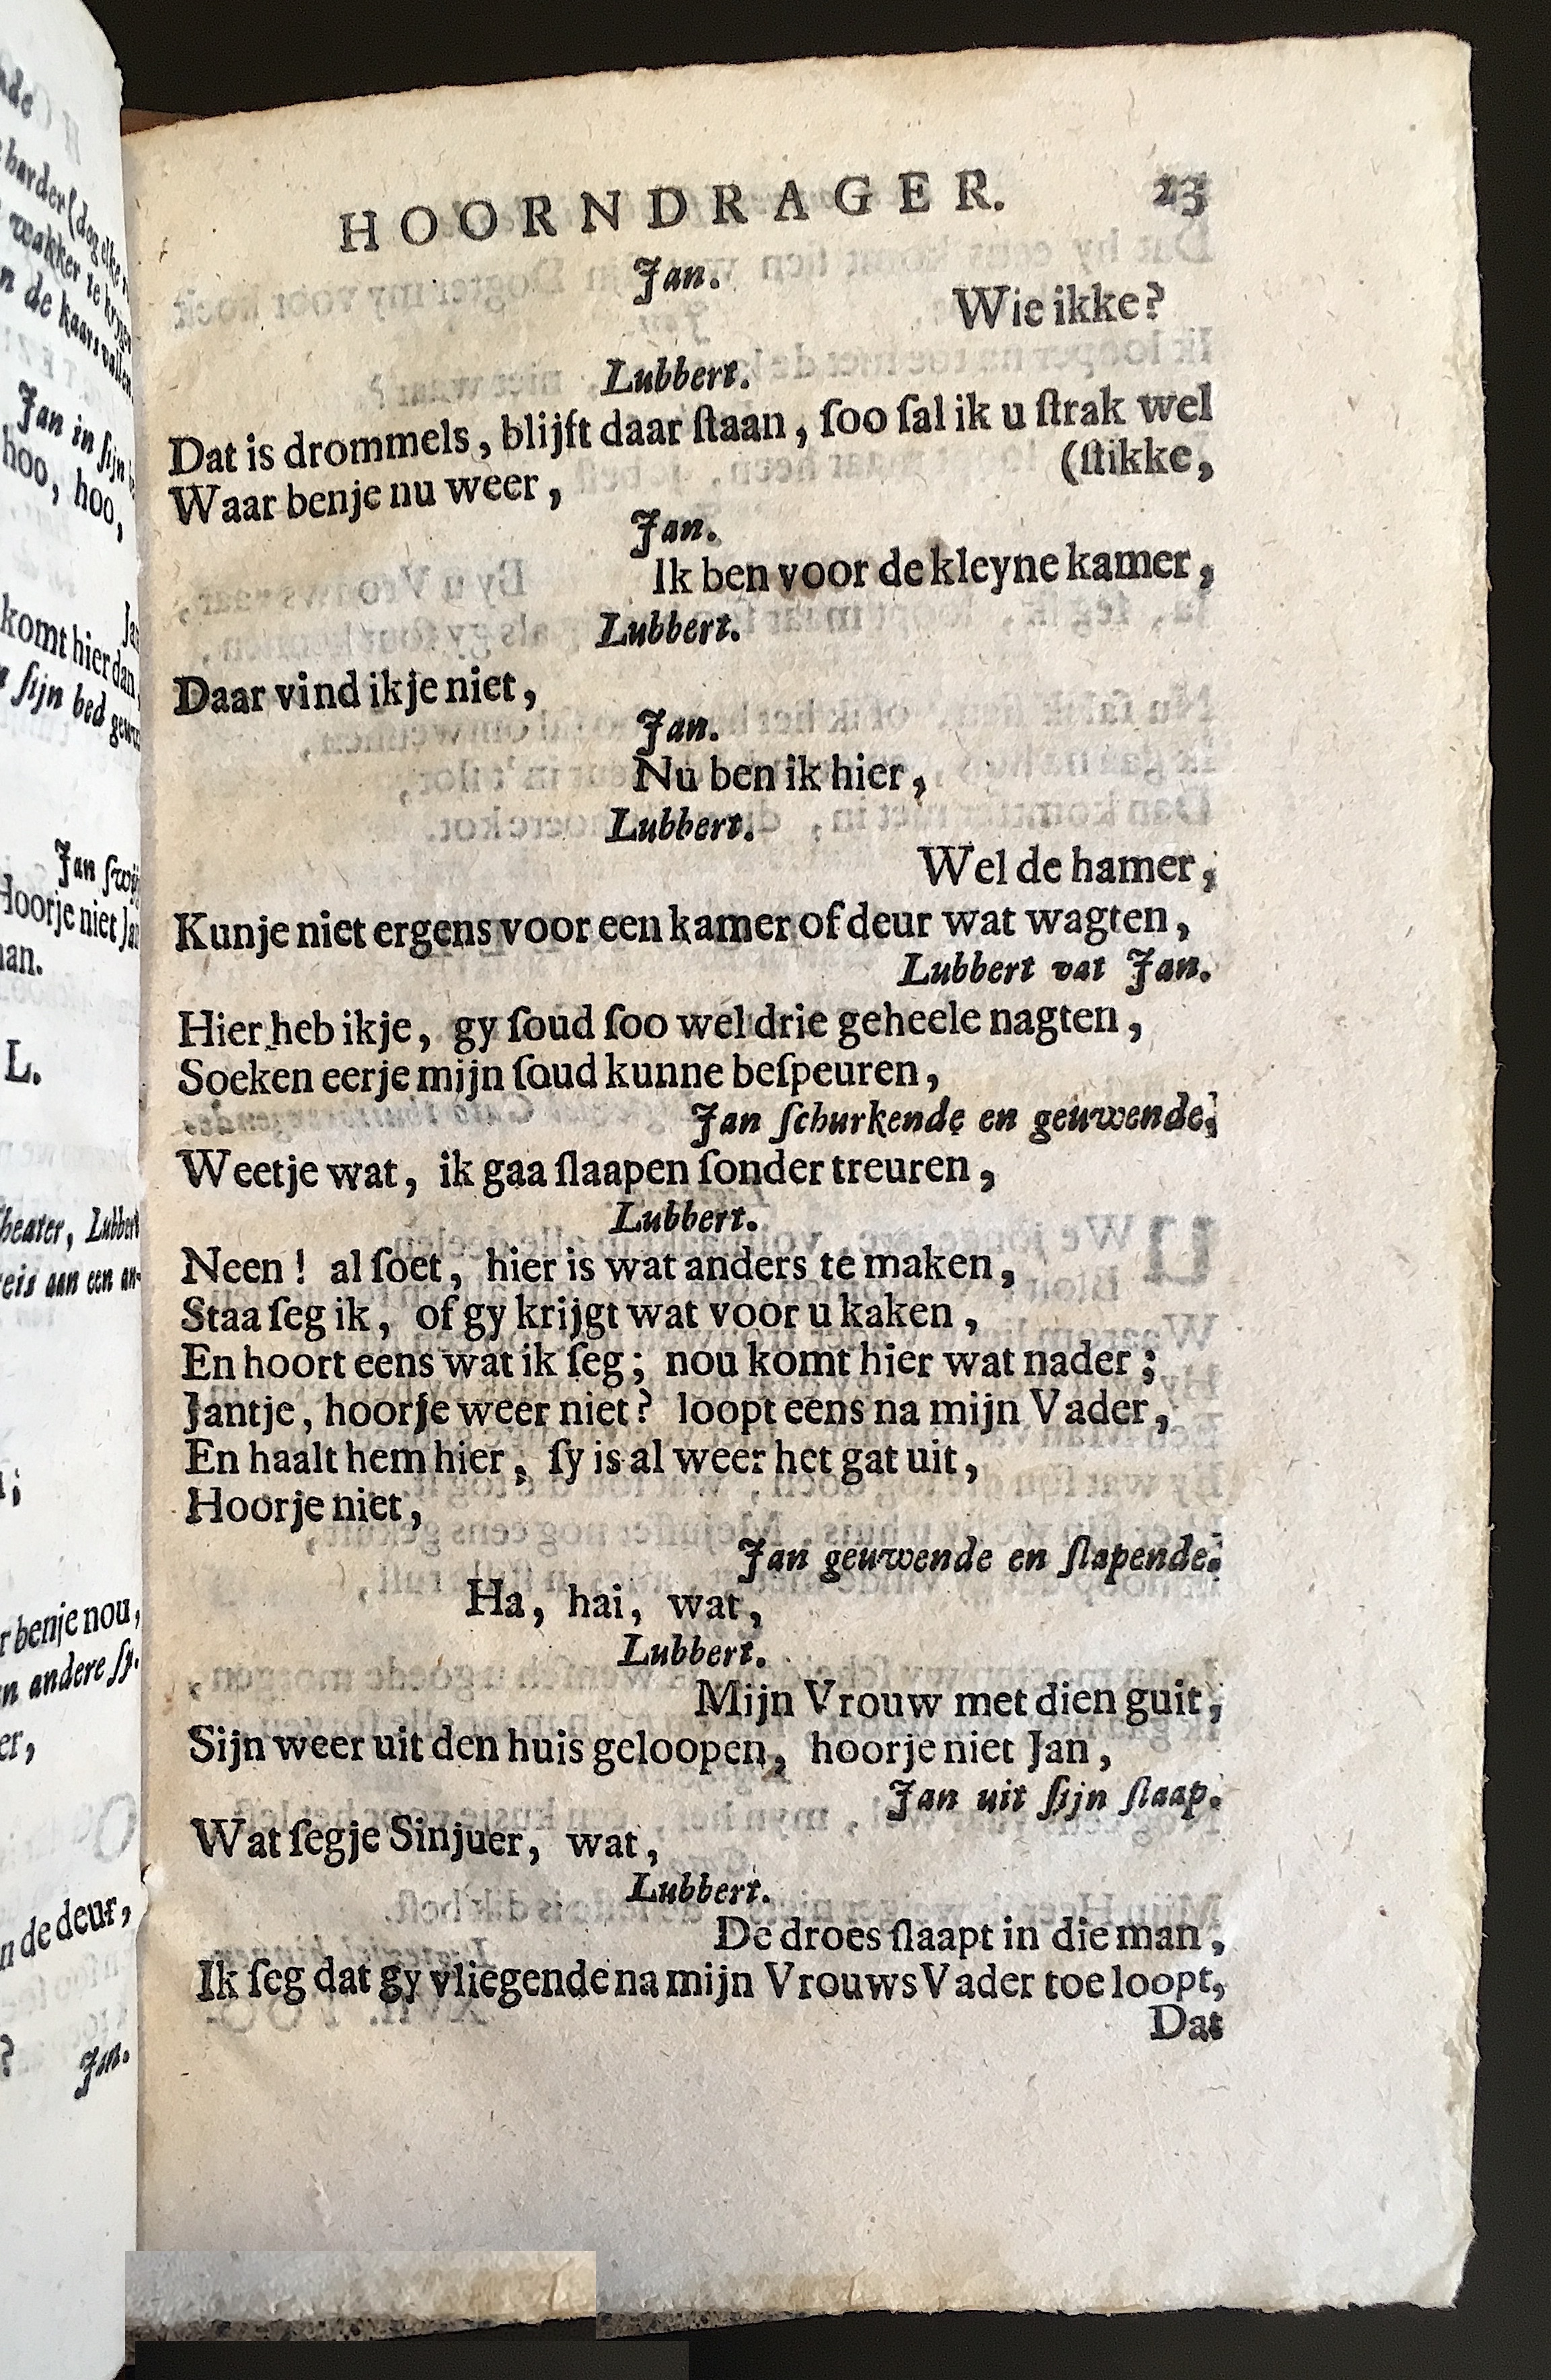 HOORNDRAGER. 23
Jan.
Wie ikke?
Lubbert.
Dat is drommels, blijft daar ſtaan, ſoo ſal ik u ſtrak wel
(ſtikke,
Waar benje nu weer,
Jan.
Ik ben voor de kleyne kamer,
Lubbert.
Daar vind ikje niet,
Jan.
Nu ben ik hier,
Lubbert.
Wel de hamer,
Kunje niet ergens voor een kamer of deur wat wagten,
Lubbert vat Jan.
Hier heb ikje, gy ſoud ſoo wel drie geheele nagten,
Soeken eerje mijn ſoud kunne beſpeuren,
Jan ſchurkende en geuwende.
Weetje wat, ik gaa ſlaapen ſonder treuren,
Lubbert.
Neen! al ſoet, hier is wat anders te maken,
Staa ſeg ik, of gy krijgt wat voor u kaken,
En hoort eens wat ik ſeg; nou komt hier wat nader;
Jantje, hoorje weer niet? loopt eens na mijn Vader,
En haalt hem hier, ſy is al weer het gat uit,
Hoorje niet,
Jan geuwende en ſlapende.
Ha, hai, wat,
Lubbert.
Mijn Vrouw met dien guit,
Sijn weer uit den huis geloopen, hoorje niet Jan,
Jan uit ſijn ſlaap.
Wat ſegje Sinjuer, wat,
Lubbert.
De droes ſlaapt in die man,
Ik ſeg dat gy vliegende na mijn Vrouws Vader toe loopt,
Dat